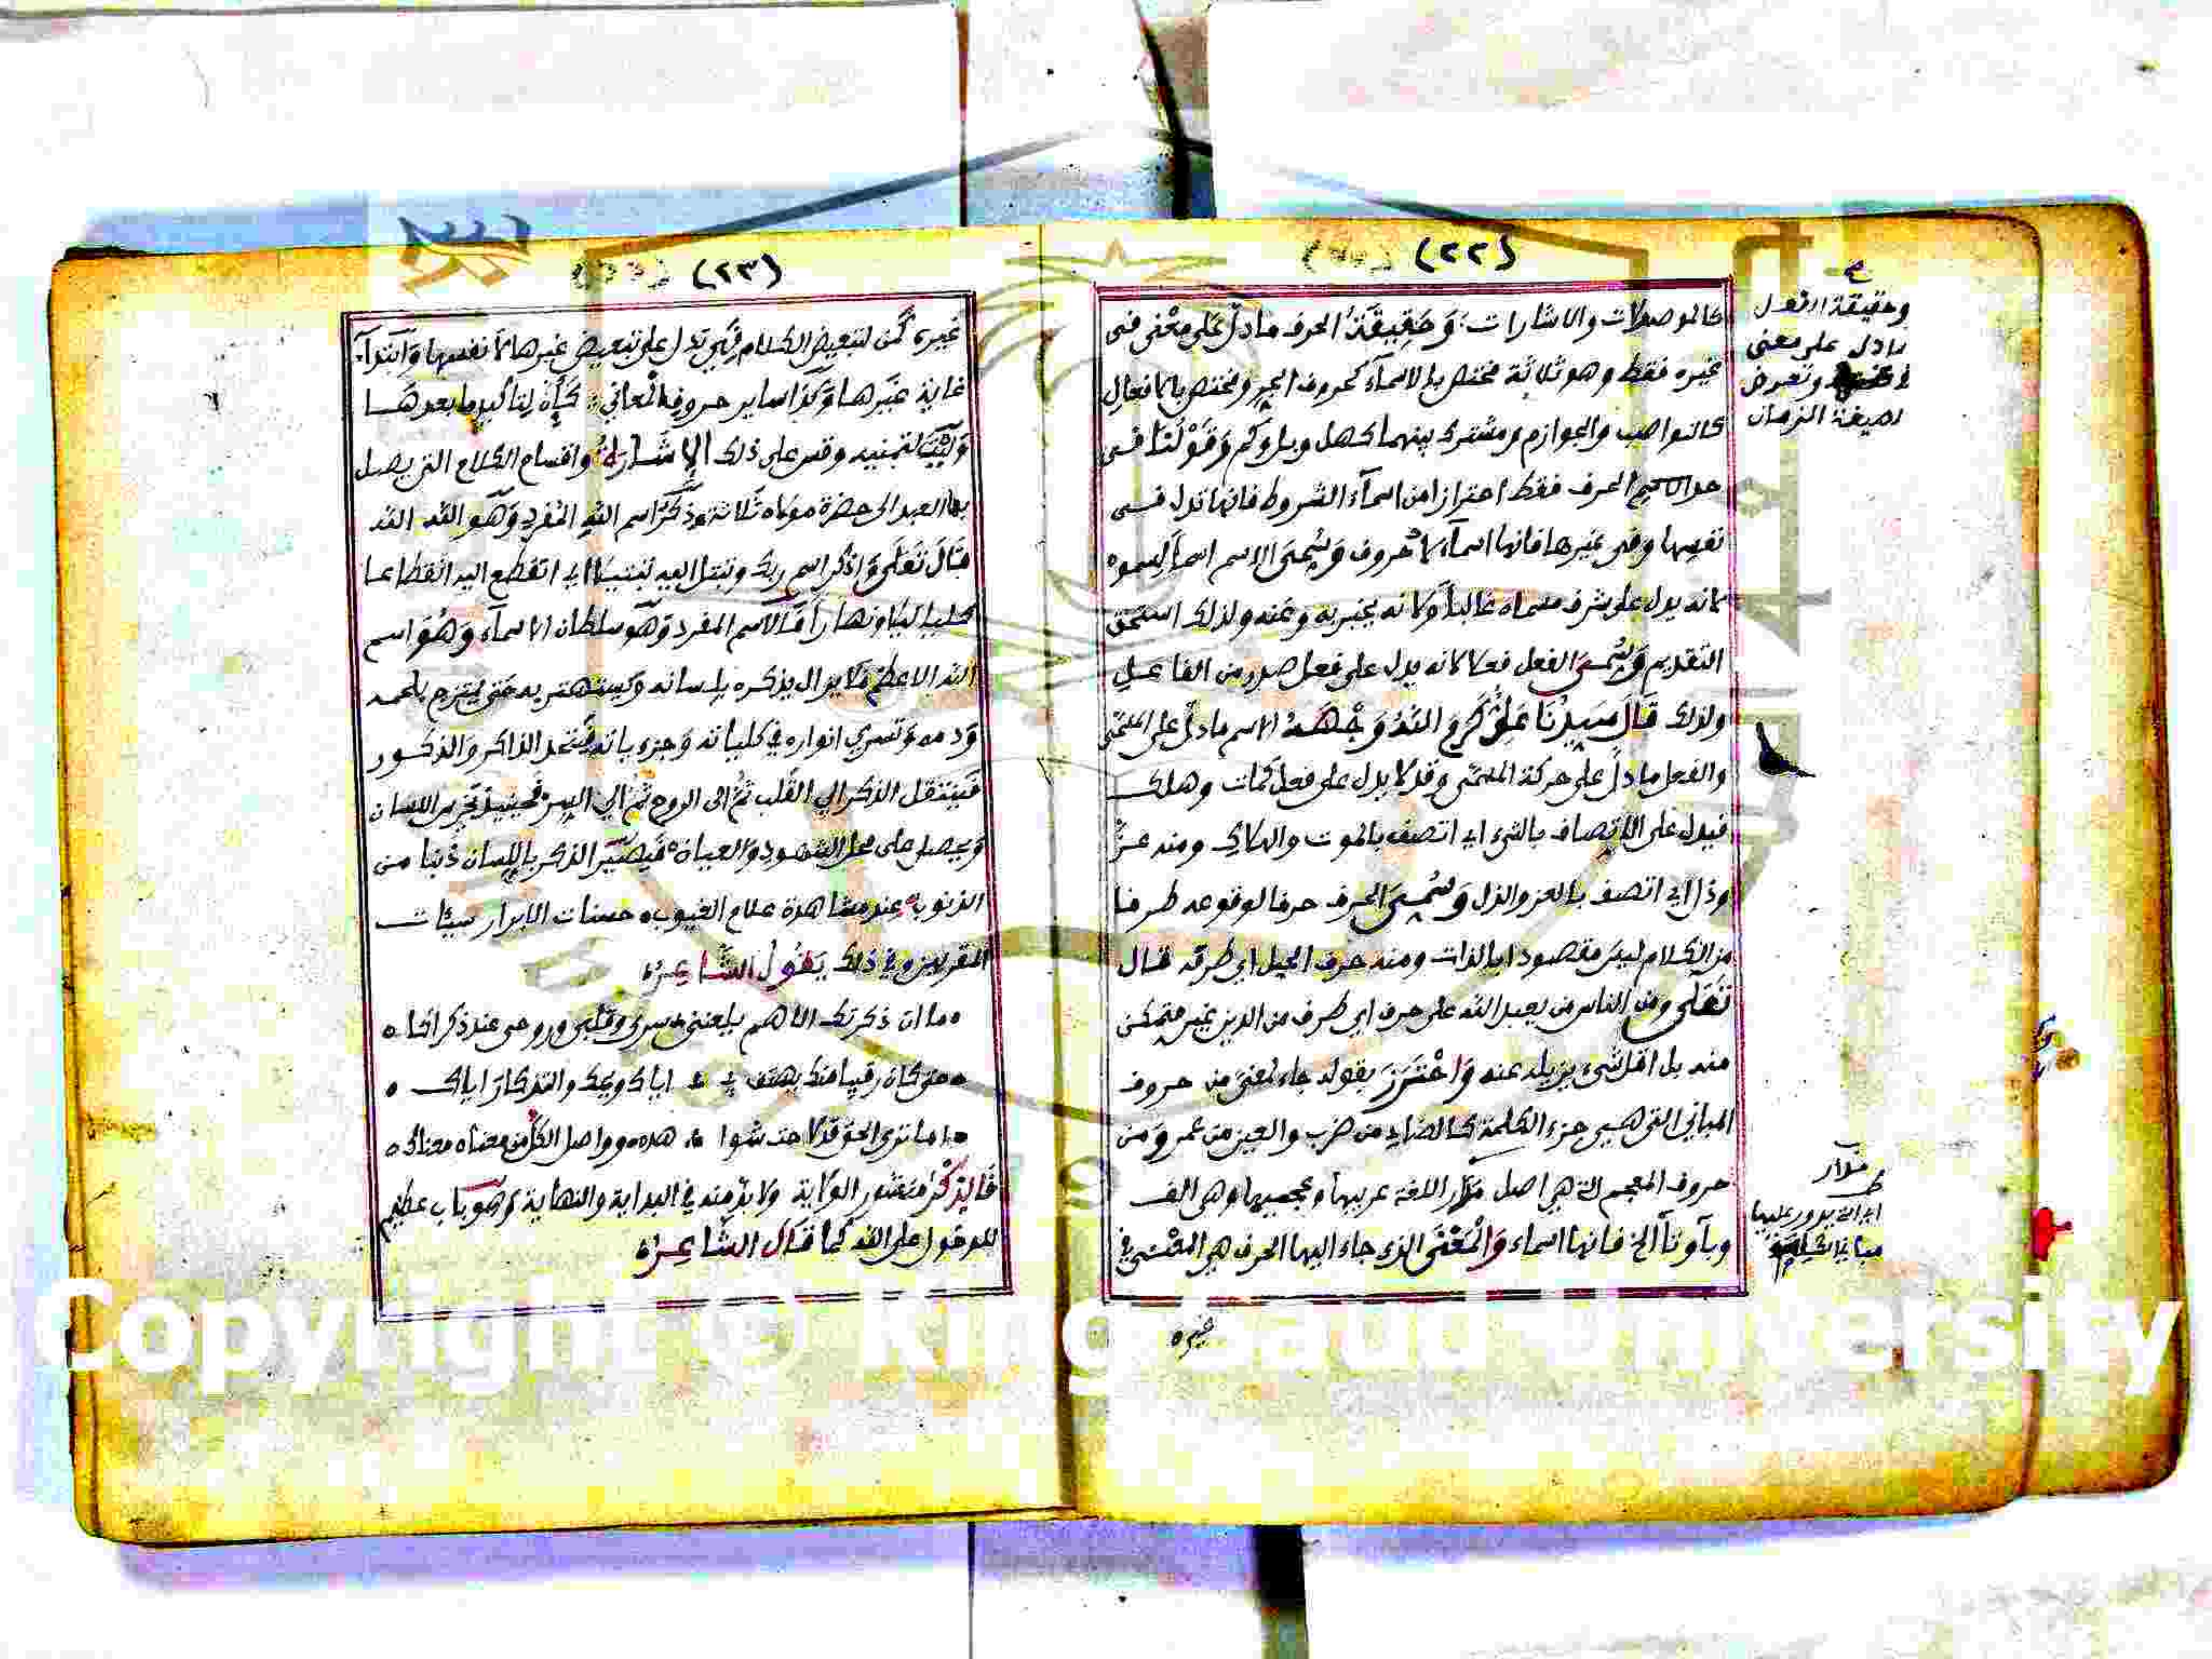 (٢٢)
كالموصولات والاشارات وَحَقِيقَةُ الحرف ما دلّ على معْنى فى
غيره فقط وهو ثلاثة مختص بالاسمآء كحروف الجر ومختص بالافعال
كالنواصب والجوازم ومشترك بينهما كهل وبل وكم وَقَوْلنَا فى
الحرف فقط احترازا من اسمآء الشروط فانها تدل فى
نفسها وفى غيرها فانها اسمآء لا حروف وَسُمىَ الاسم اسما لسموه
لانه يدل على شرف مسماه غالباً ولانه يخبر به وعنه ولذلك استحق
التقديم وَسُمىَ الفعل فعلا لانه يدل على فعل صدر من الفاعل
ولذلك قَالَ سَيدُنَا عَلِىٌّ كَرَّمَ اللهُ وَجْهَهُ الاسم ما دلّ على المسمّى
والفعل ما دلّ على حركة المسمّى وقد لا يدل على فعل كمات وهلك
فيدل على الاتصاف بالشىء اى اتصف بالموت والهلاك ومنه عزَّ
وذل اى اتصف بالعز والذل وَسُمىَ الحرف حرفا لوقوعه طرفا
من الكلام ليس مقصودا بالذات ومنه حرف الجبل اى طرفه قال
تَعَلَى ومن الناس من يعبد الله على حرف اى طرف من الدين غير متمكن
منه بل اقل شىء يزيله عنه وَاحْتَرَزَ بقوله جاء لمعنىً من حروف
المبانى التى هى جزء الكلمة كالضاد من ضرب والعين من عمر وَمن
حروف المعجم التى هى اصل مدار اللغة عربيها وعجميها وهى الف
وبآ وتآ الخ فانها اسماء وَالْمَعْنَى الذى جاء اليها الحرف هى المعْنى فى
غيره
وحقيقة الفعل
ما دل على معنى
وتعرض
لصيغة الزمان
مدار
اى التى يدور عليها
مبانى
(٢٣)
غيره كَمن لتبعيض الكلام فهى تدل على تبعيض غيرها لا نفسها وَابتدآء
غاية غيرها وَكَذَا ساير حروف المعاني كَأَنَّ لتاكيد ما بعدهَا
وَلَيْتَ لتمنيه وقس على ذلك الإشَارَةُ واقسام الكلام التى يصل
بها العبد الى حضرة مولاه ثلاثة ذكْرُ اسم اللهِ المُفرد وَهُو الله الله
قَالَ تَعَلَى وَاذكر اسم ربك وتبتل اليه تبتيلا اى انقطع اليه انقطاعا
كليا ليلا ونهارا فَالاسم المفرد وَهَو سلطان الاسمآء وَهُوَ اسم
الله الاعظم فلا يزال يذكره بلسانه وَيستهتر به حَتى يمتزج بلحمه
وَدمه وَتسري انواره في كلياته وَجزءياته فيتحد الذاكر وَالمذكور
فَينتقل الذكر الي القلب ثُمَّ الى الروح ثم الي السر فحينئذ يخرس اللسان
وَيحصل على محل الشهود وَالعيان فَيصير الذكر باللسان ذنبا من
الذنوب عند مشاهدة علام الغيوب حسنات الابرار سيئات
المقربين وفي ذلك يَقُولُ الشَّاعِرُ
ما ان ذكرتك الا هم يلعننى سرى وقلبى وروحى عند ذكراكا
حتى كان رقيبا منك يهتف بى اياك ويحك والتذكارَ اياك
اما ترى الحق قد لاحت شواهده وواصل الكل من معناه معناك
فَالذكْرُ منشور الولاية ولا بد منه في البداية والنهاية وَهُو باب عظيم
للدخول على الله كما قَالَ الشَّاعِرُ
Copyright © King Saud University